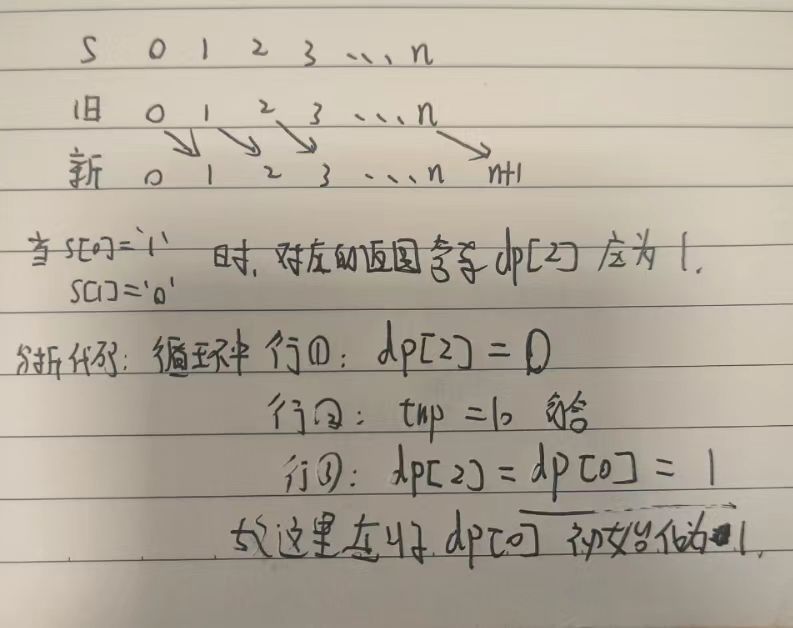 S 0 1 2 3 ... n
旧 0 1 2 3 ... n
新 0 1 2 3 ... n n+1
当 S[0]='1' 时, 对应的返回答案 dp[2] 应为 1.
S[1]='0'
分析代码: 循环中 行①: dp[2] = 0
行②: tmp = 10 符合
行③: dp[2] = dp[0] = 1
故这里应将 dp[0] 初始化为 1.